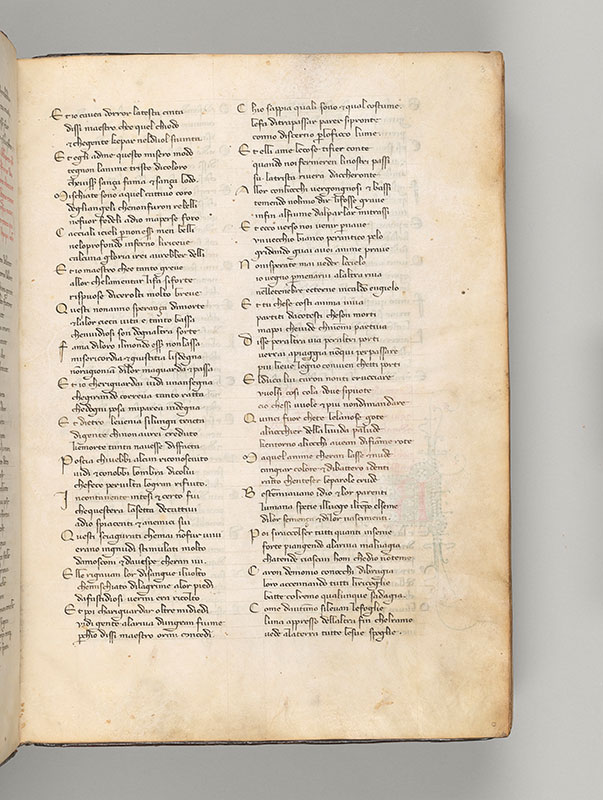 Et io cavea derror latesta cinta
dissi maestro che e quel chiodo
& chegente he par nelduol sivinta
Et egli adme questo misero modo
tegnon lanime triste dicoloro
chevisser sança fama & sança lodo
Mischiate sono aquel cattivo coro
degliangeli chenonfuron rebelli
nefuor fedeli adio maperse foro
Cacciali icieli pnonesser men belli
nelo profondo inferno liriceve
calcuna gloria irei avrebber delli
Et io maestro che e tanto greve
allor chelamentar lifa siforte
rispuose dicerolti molto breve
Questi nonanno sperança dimorte
& lalor cieca vita e tanto bassa
chenvidiosi son dognaltra sorte
Fama diloro ilmondo esser nonlassa
misericordia & giustitia lisdegna
non ragionia dilor maguarda & passa
Et io cheriguardai vidi unansegna
chegirando correva tanto ratta
chedogni posa miparea indegna
Et dietro levenia silunga tratta
digente chinon avrei creduto
chemorte tanta navesse disfatta
Poscia chio vebbi alcun riconosciuto
vidi & conobbi lombra dicolui
chefece per vilta logran rifiuto
Incontanente intesi & certo fui
chequestera lasetta decattivi
adio spiacenti & anemici sui
Questi sciagurati chemai nofur vivi
erano ingnudi stimulati molto
damosconi & davespe cheran ivi
Elle rigavan lor disangue ilvolto
chemischiato dilagrime alor piedi
dafastidiosi vermi era ricolto
Et poi chariguardar oltre midiedi
vidi gente alariva dungran fiume
perchio dissi maestro ormi concedi
Chio sappia quali sono & qual costume
lefa ditrapassar parer sipronte
comio discerno plofioco lume
Et elli ame lecose tifier conte
quando noi fermeren linostri passi
su latrista rivera daccheronte
Allor conliocchi vergongnosi & bassi
temendo nolmio dir lifosse grave
infin alfiume dalparlar mitrassi
Et ecco verso noi venir pnave
unvecchio bianco perantico pelo
gridando guai avoi anime prave
Nonisperate mai veder locielo
io vegno pmenarvi alaltra riva
nelletenebre eterne incaldo engielo
Et tu chese costi anima viva
partiti dacotesti cheson morti
mapoi chevide chnomi partiva
Disse peraltra via peraltri porti
verrai apiaggia noqui perpassare
piu lieve legno convien cheti porti
Elduca lui caron nonti crucciare
vuolsi cosi cola dove sipuote
cio chessi vuole & piu nondimandare
Quinci fuor chete lelanose gote
alnocchier della livida palude
kentorno aliocchi avem difiame rote
Maquel anime cheran lasse & nude
cangiar colore & dibattero identi
ratto chenteser leparole crude
Bestemiavano idio & lor parenti
lumana spetie illuogo iltepo elseme
dilor semença & dilor nascimenti
Poi siraccolser tutti quanti insieme
forte piangendo alariva malvagia
chattende ciascun hom chedio noteme
Caron demonio conocchi dibragia
loro accennando tutti liricoglie
batte colremo qualunque sadagia
Come dautunno silevan lefoglie
luna appresso dellaltra fin chelramo
vede alaterra tutte lesue spoglie